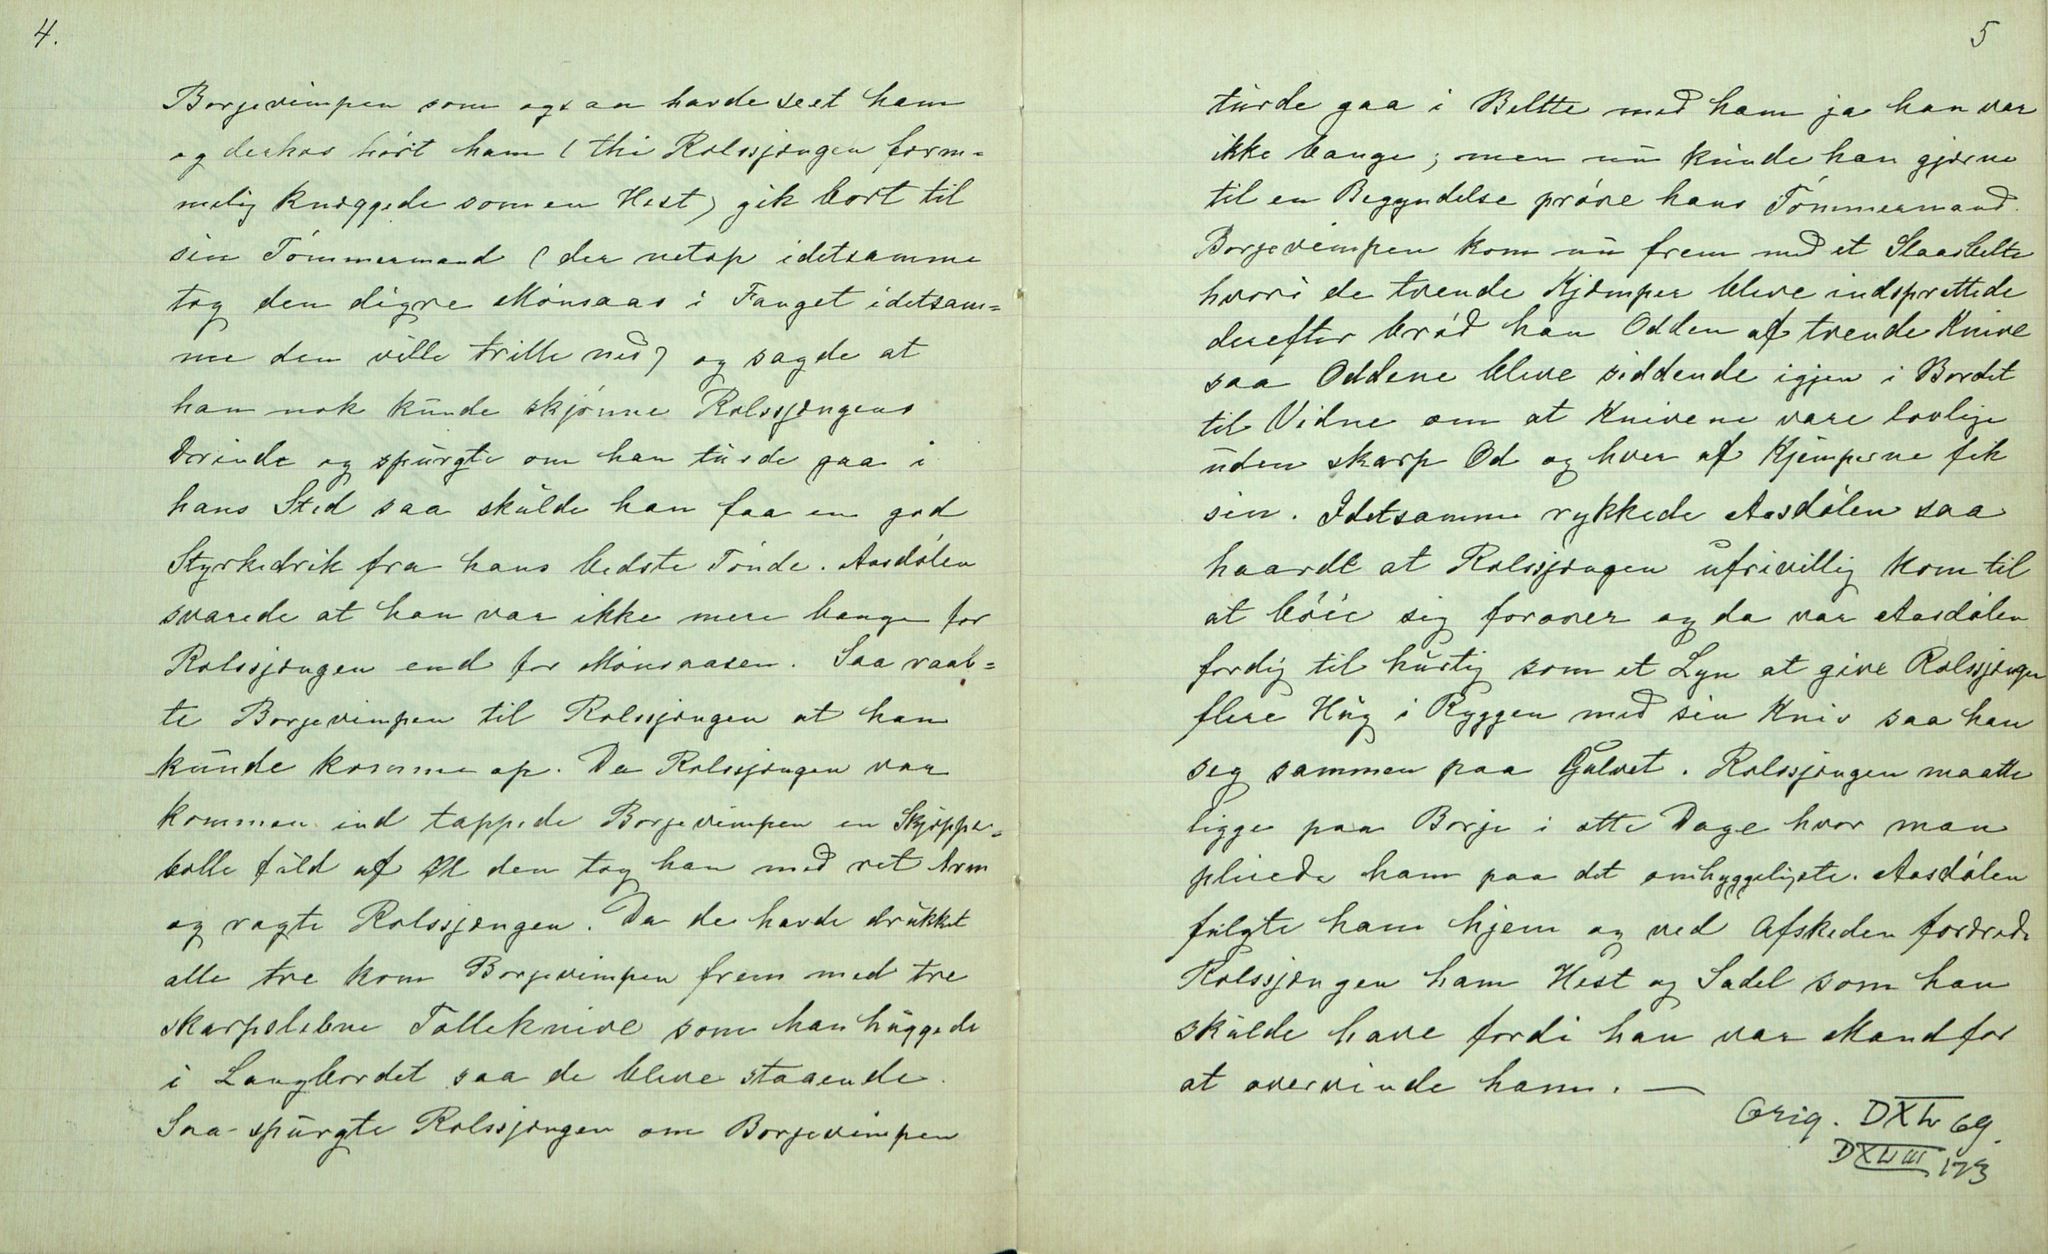 4.
Borjevimpen som ogsaa havde seet ham
og derhos hört ham ( thi Rolssjongen form=
melig knæggede som en Hest) gik bort til
sin Tömmermand ( der netop idetsamme
tog den digre Mönsaas i Fanget idetsam=
me den vilde trille ned) og sagde at
han nok kunde skjönne Rolssjongens
Ærinde og spurgte om han turde gaa i
hans Sted saa skulde han faa en god
Styrkedrik fra hans bedste Tönde. Aasdölen
svarede at han var ikke mere bange for
Rolssjongen end for Mönsaasen. Saa raab=
te Borjevimpen til Rolssjongen at han
kunde komme op. Da Rolssjongen var
kommen ind tappede Borjevimpen en Skjæppe=
bolle fuld af Øl den tog han med ret Arm
og ragte Rolssjongen. Da de havde drukket
alle tre kom Borjevimpen frem med tre
skarpslebne Tolleknive som han huggede
i Langbordet saa de bleve staaende.
Saa spurgte Rolssjongen om Borjevimpen
5
turde gaa i Beltte med ham ja han var
ikke bange; men nu kunde han gjærne
til en Begyndelse pröve hans Tömmermand.
Borjevimpen kom nu frem med et Slaasbelte
hvori de tvende Kjæmper bleve indsprettede
derefter bröd han Odden af tvende Knive
saa Oddene bleve siddende igjen i Bordet
til Vidne om at Knivene vare lovlige
uden skarp Od og hver af Kjæmperne fik
sin. Idetsamme rykkede Aasdölen saa
haardt at Rolssjongen ufrivillig kom til
at böie sig forover og da var Aasdölen
færdig til hurtig som et Lyn at give Rolssjongen
flere Hug i Ryggen med sin Kniv saa han
seg sammen paa Gulvet. Rolssjongen maatte
ligge paa Borje i otte Dage hvor man
pleiede ham paa det omhyggeligste. Aasdölen
fulgte ham hjem og ved Afskeden forærede
Rolssjongen ham Hest og Sadel som han
skulde have fordi han var Mand for
at overvinde ham. —
Orig. DXL 69.
DXLIII 173